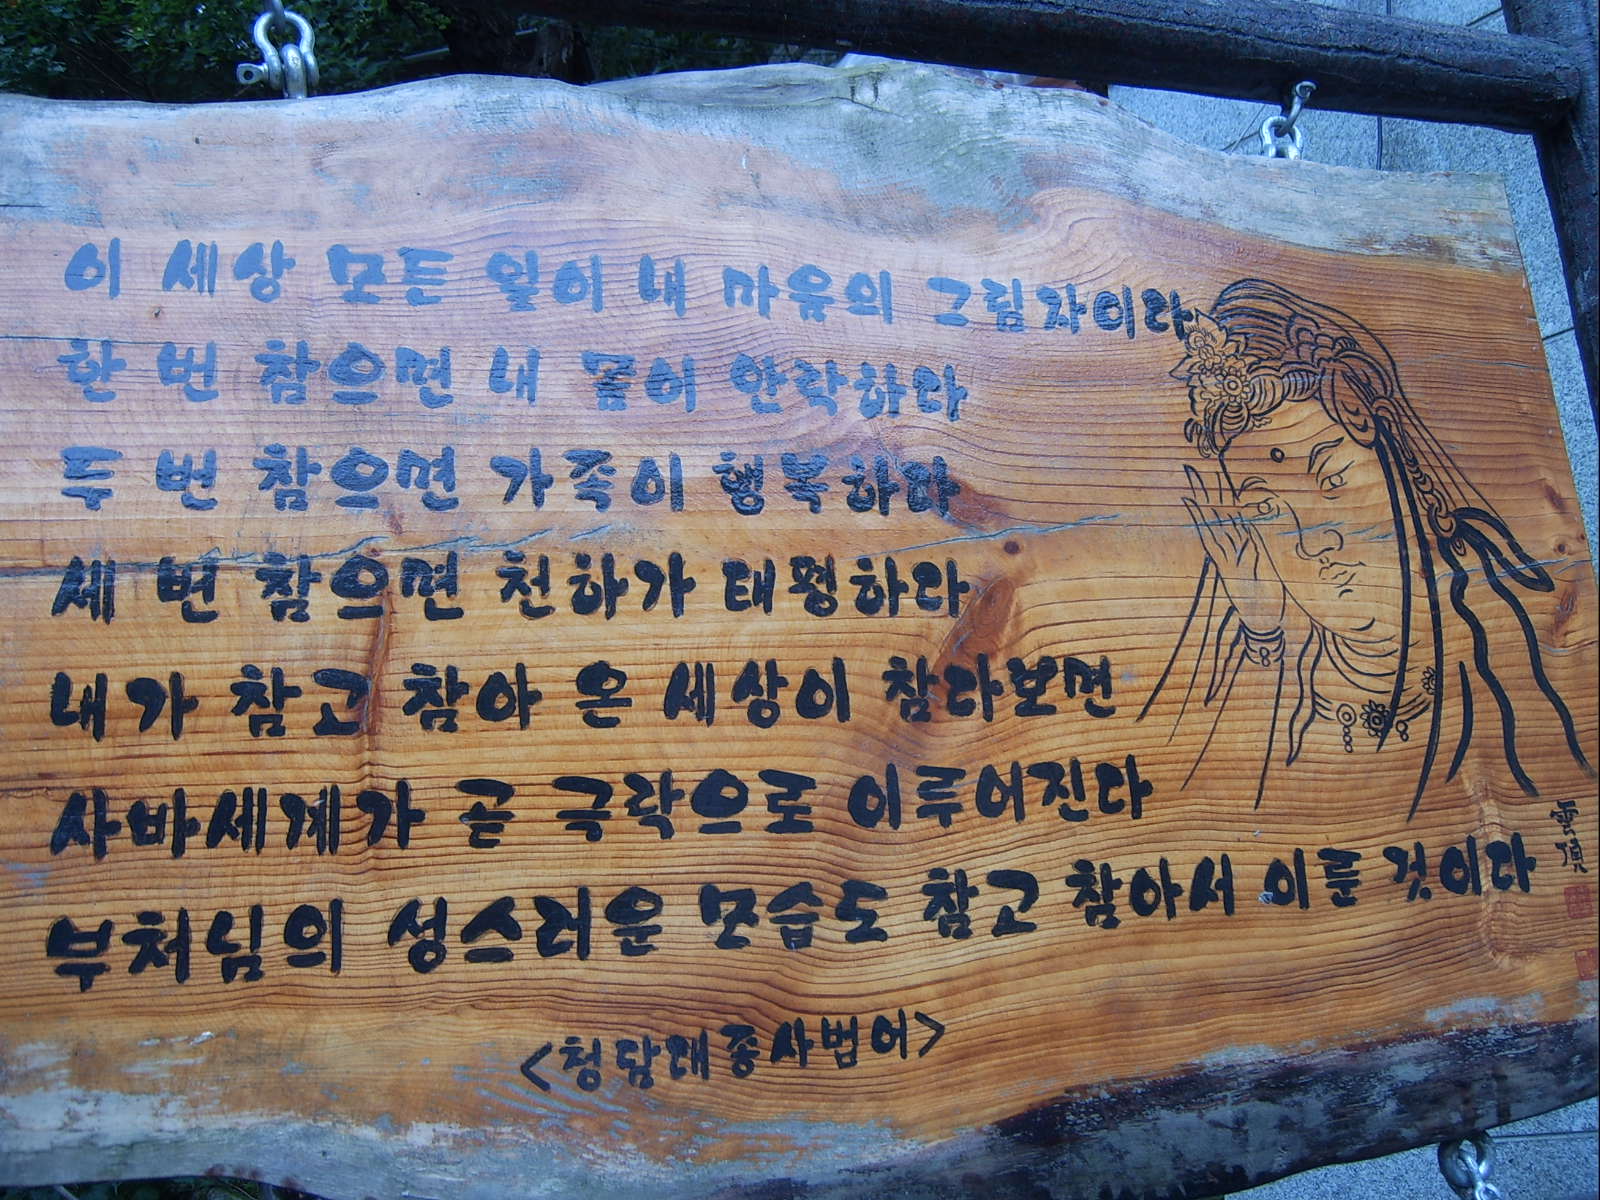 이 세상 모든 일이 내 마음의 그림자이라
한 번 참으면 내 몸이 안락하다
두 번 참으면 가족이 행복하라
세 번 참으면 천하가 태평하라
내가 참고 참아 온 세상이 참다보면
사바세계가 곧 극락으로 이루어진다
부처님의 성스러운 모습도 참고 참아서 이룬 것이다
<청담대종사법어>
雲頂